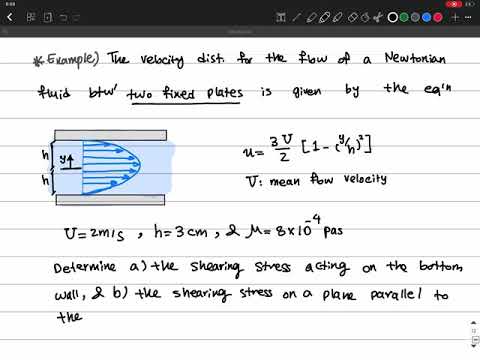 * Example) The velocity dist. for the flow of a Newtonian
fluid btw' two fixed plates is given by the eq'n
h
y
h
u = 3V/2 [1 - (y/h)²]
V: mean flow velocity
V = 2m/s , h = 3cm , & μ = 8×10⁻⁴ pas
Determine a) the shearing stress acting on the bottom
wall, & b) the shearing stress on a plane parallel to
the